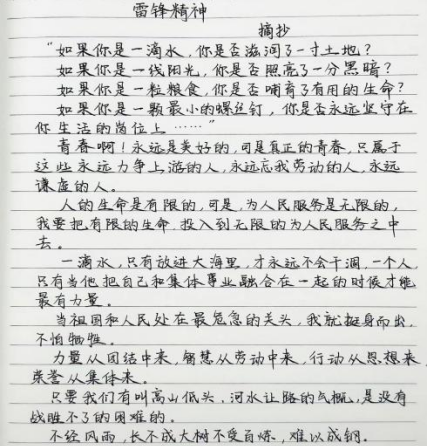 雷锋精神
摘抄
“如果你是一滴水，你是否滋润了一寸土地？
如果你是一线阳光，你是否照亮了一分黑暗？
如果你是一粒粮食，你是否哺育了有用的生命？
如果你是一颗最小的螺丝钉，你是否永远坚守在
你生活的岗位上……”
青春啊！永远是美好的，可是真正的青春，只属于
这些永远力争上游的人，永远忘我劳动的人，永远
谦虚的人。
人的生命是有限的，可是，为人民服务是无限的，
我要把有限的生命，投入到无限的为人民服务之中
去。
一滴水，只有放进大海里，才永远不会干涸，一个人
只有当他把自己和集体事业融合在一起的时候才能
最有力量。
当祖国和人民处在最危急的关头，我就挺身而出，
不怕牺牲。
力量从团结中来，智慧从劳动中来，行动从思想来
荣誉从集体来。
只要我们有叫高山低头，河水让路的气概，是没有
战胜不了的困难的。
不经风雨，长不成大树不受百炼，难以成钢。